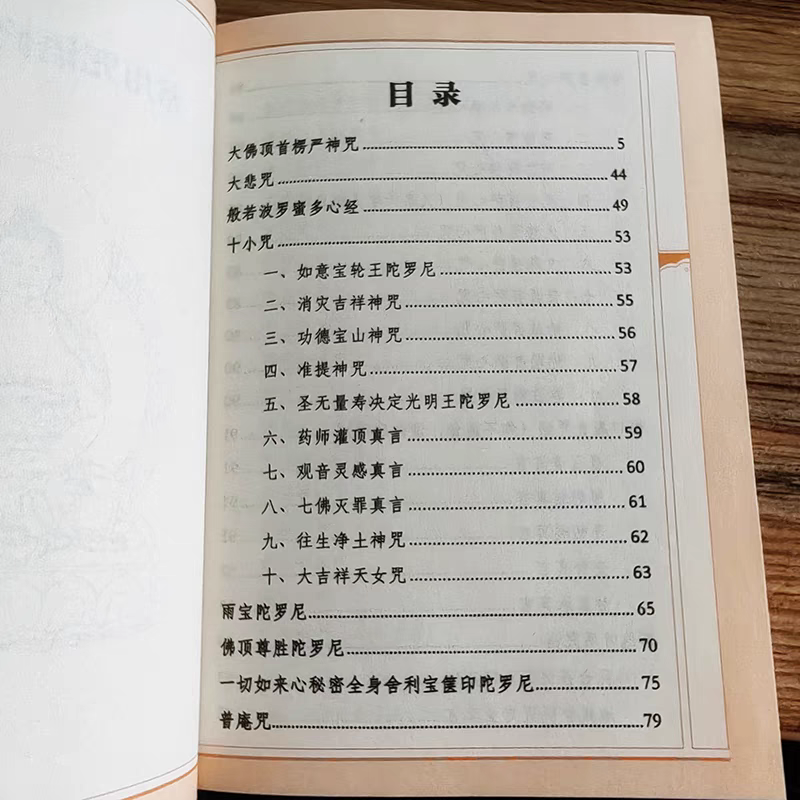 目录
大佛顶首楞严神咒................5
大悲咒................44
般若波罗蜜多心经................49
十小咒................53
一、如意宝轮王陀罗尼................53
二、消灾吉祥神咒................55
三、功德宝山神咒................56
四、准提神咒................57
五、圣无量寿决定光明王陀罗尼................58
六、药师灌顶真言................59
七、观音灵感真言................60
八、七佛灭罪真言................61
九、往生净土神咒................62
十、大吉祥天女咒................63
雨宝陀罗尼................65
佛顶尊胜陀罗尼................70
一切如来心秘密全身舍利宝箧印陀罗尼................75
普庵咒................79